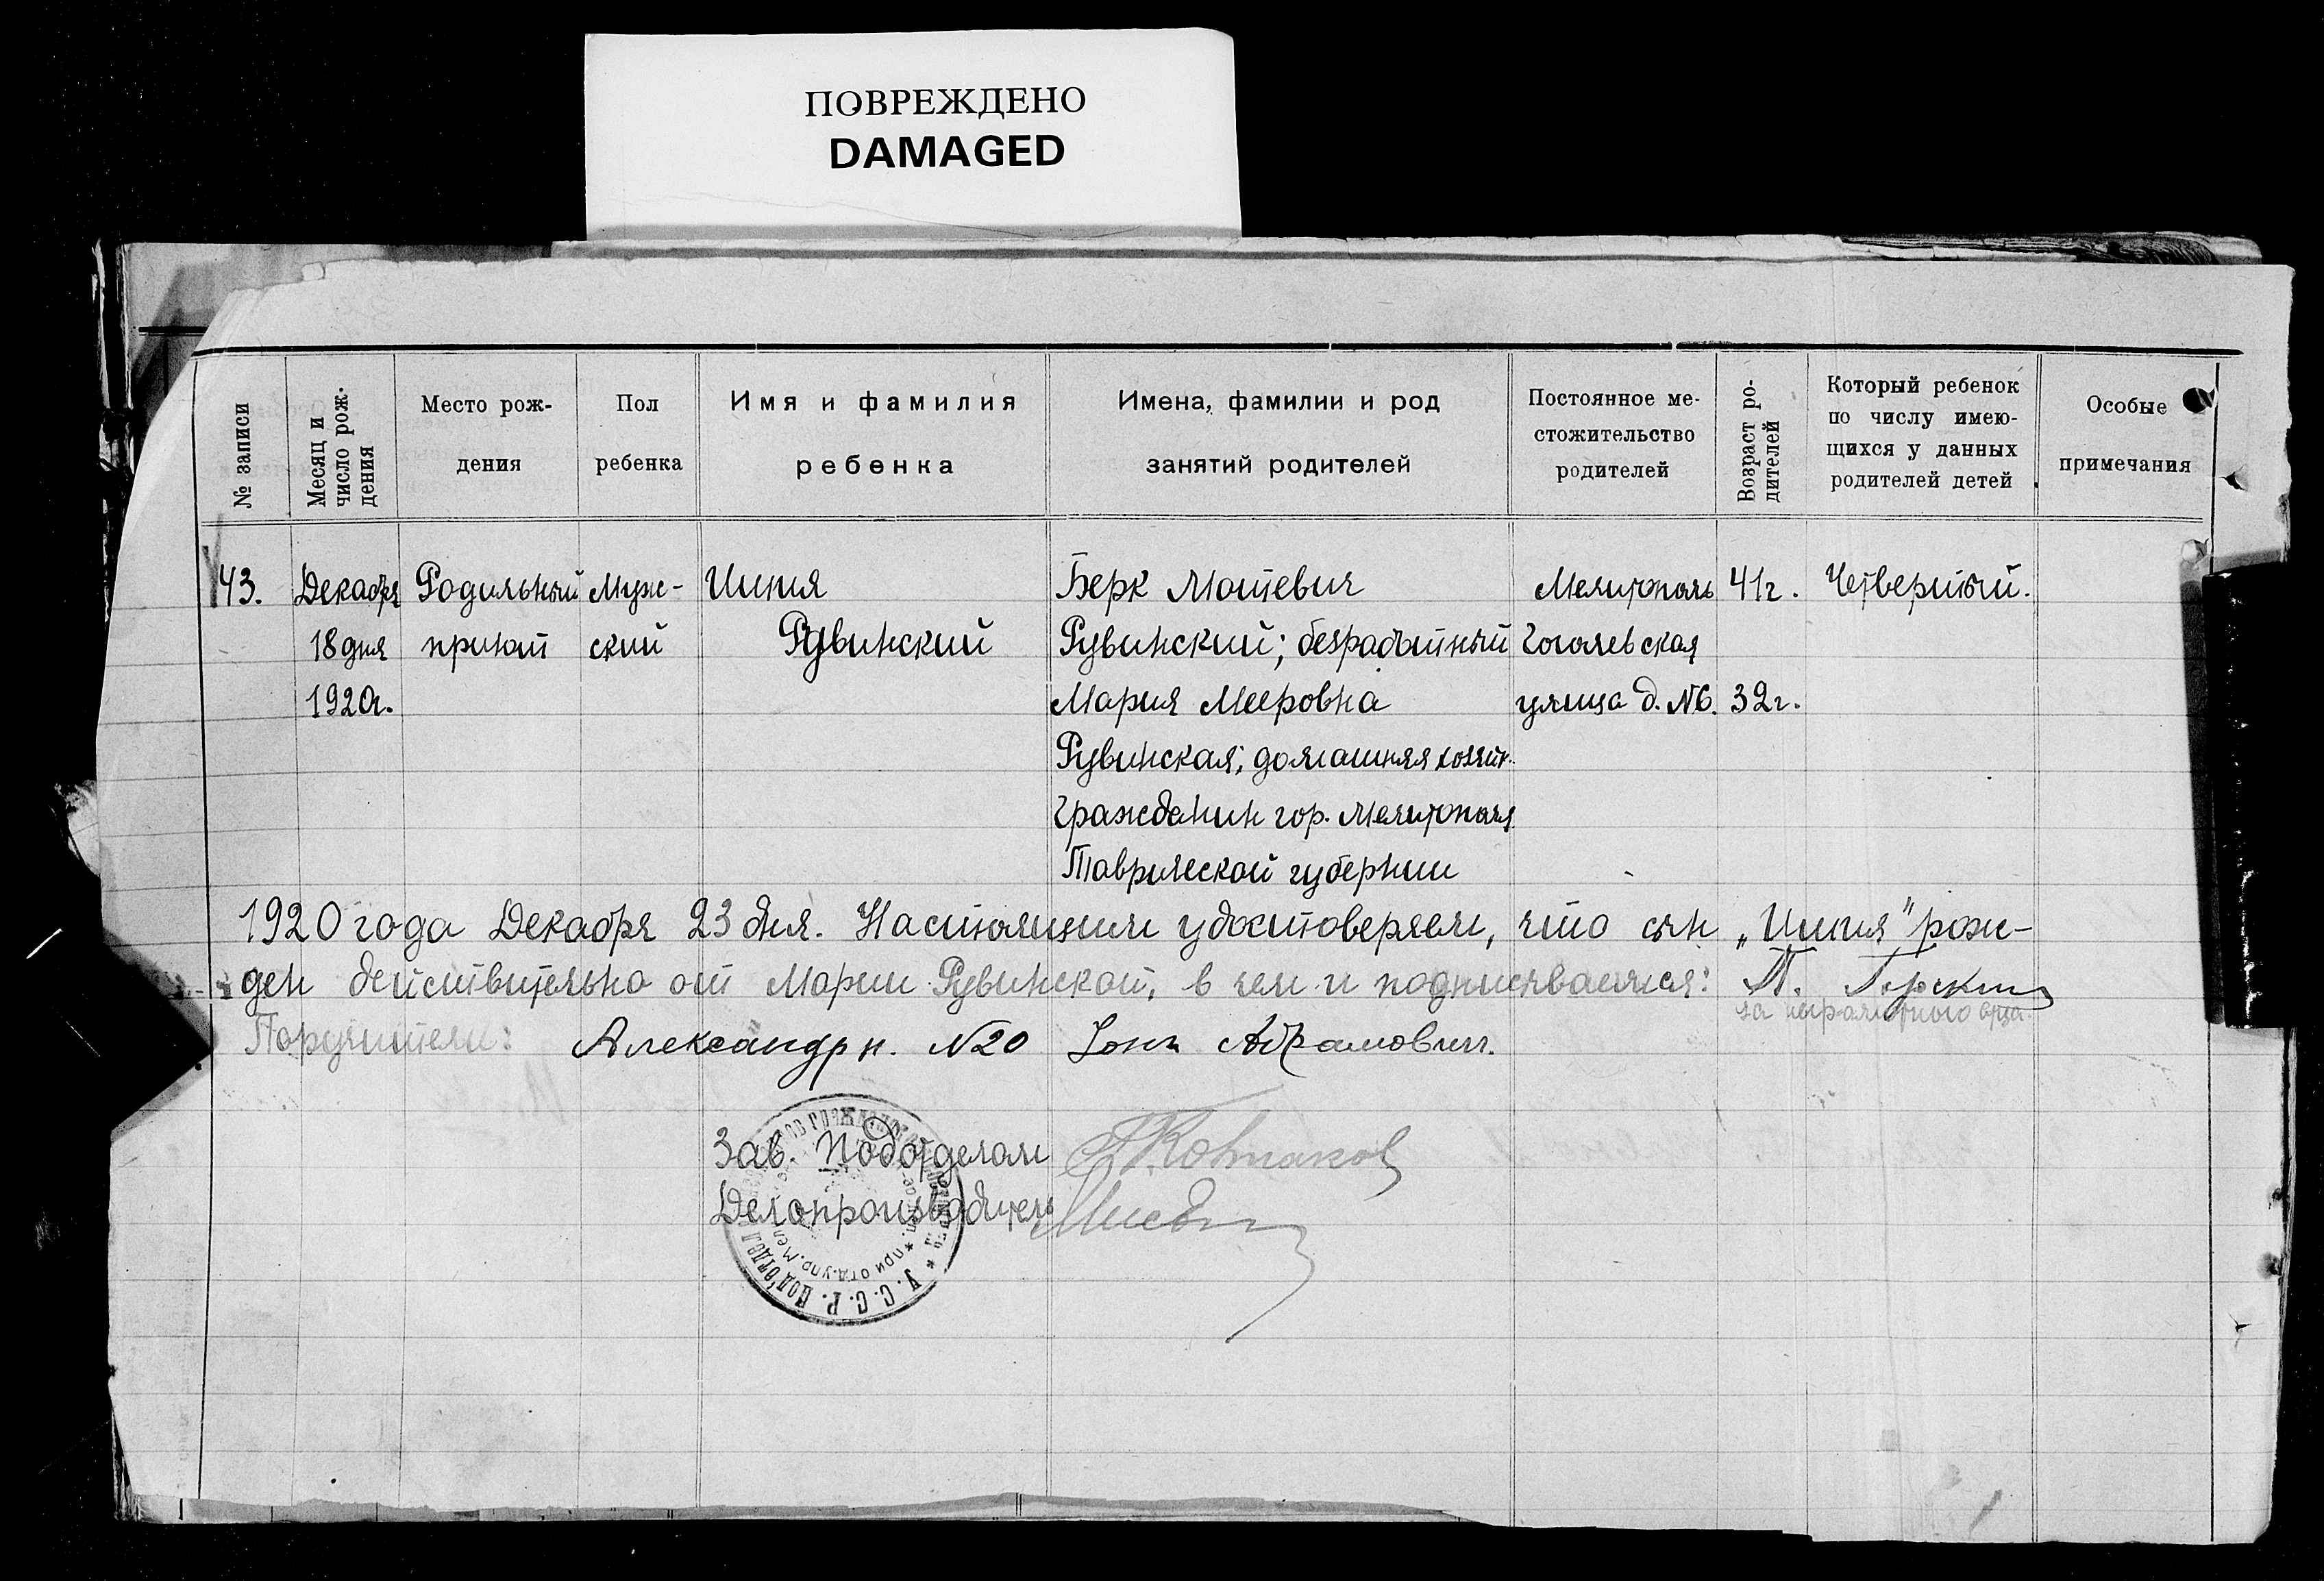 ПОВРЕЖДЕНО
DAMAGED
№ записи
Месяц и
число рож-
дения
Место рож-
дения
Пол
ребенка
Имя и фамилия
ребенка
Имена, фамилии и род
занятий родителей
Постоянное ме-
стожительство
родителей
Возраст ро-
дителей
Который ребенок
по числу имею-
щихся у данных
родителей детей
Особые
примечания
43.
Декабря
18 дня
1920г.
Родильный
приют
Муж-
ский
Рувинский
Берк Мотевич
Рувинский; безработный
Мария Мееровна
Рувинская; домашняя хозяйк.
Граждании гор. Мелитополя
Таврической губернии
Мелитополь
Гоголевская
улица д. №6.
41г.
32г.
Четвертый.
1920 года Декабря 23 дня. Настоящим удостоверяем, что сын рож-
ден действительно от Марии Рувинской, в чем и подписываемся:
за неграмотного отца
Поручители: Александр п. №20 Абрамович.
Зав. Подотделом
Делопроизводитель
* У.С.С.Р. Под'отдел
* при отд. упр. Мел